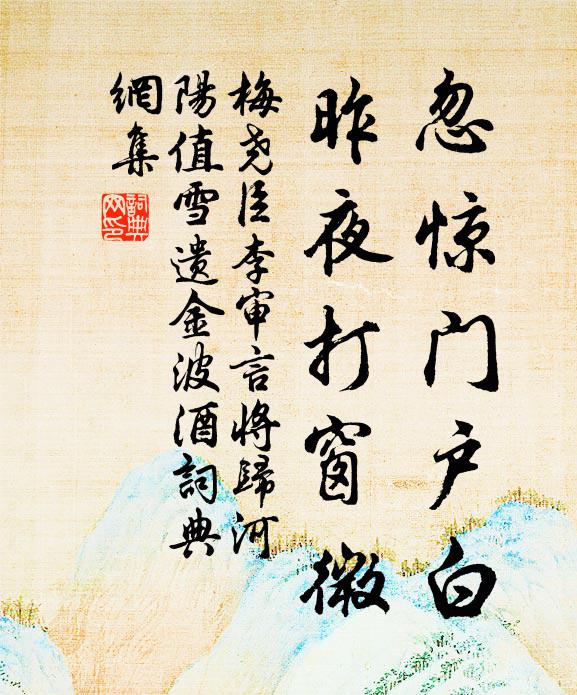 忽惊门户白
昨夜打窗微
梅尧臣李审言将歸河
陽值雪遗金波酒詞典
網集
詞典网印